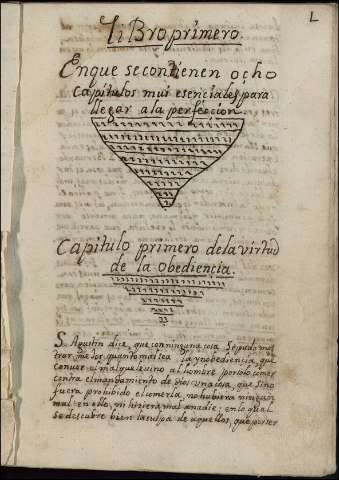 1
Libro primero.
Enque secontienen ocho
Capitulos mui esenciales para
llegar ala perfeccion.
Capitulo primero dela virtud
de la obediencia.
S. Agustin dice, que conningunacosa Sepudo mos
trar mejor quanto mal sea la ynobediencia, que
con ver el mal que vino al hombre por solo comer
contra el mandamiento de Dios una cosa, que sino
fuera prohibido elcomerla, no hubiera ningun
mal en ello, ni hiziera mal anadie; enlo qual
se descubre bien la culpa de aquellos, que por ser